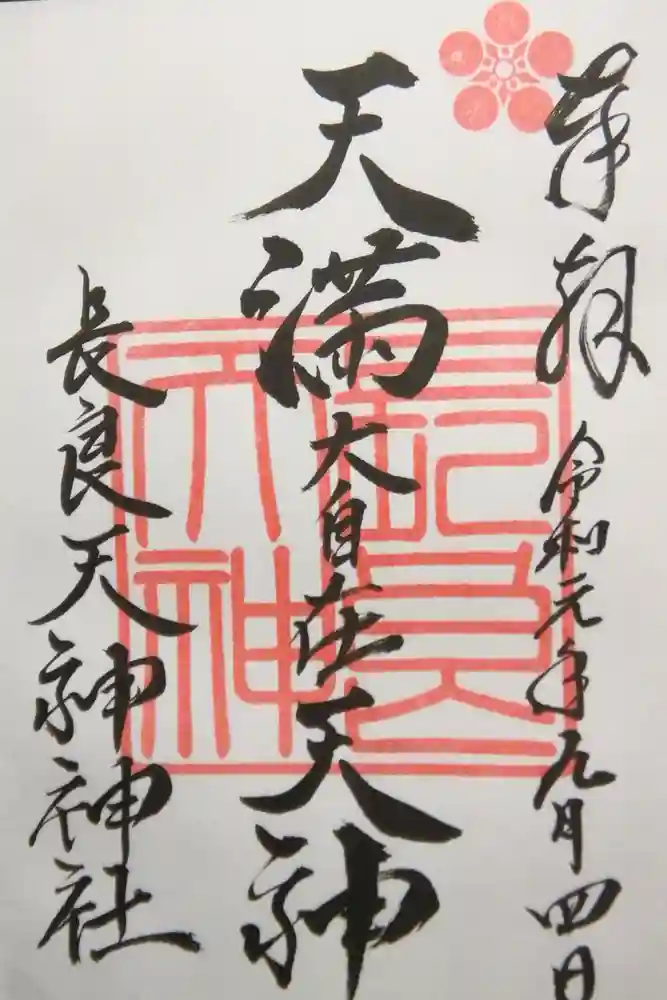 奉拝
令和元年九月四日
天満大自在天神
長良天神神社